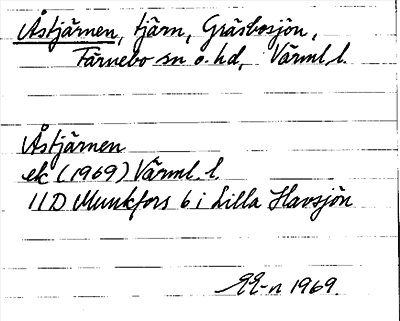 Åstjärnen, tjärn, Gräsbosjön,
Färnebo sn o. hd, Värml. l.
Åstjärnen
ek (1969) Värml. l.
11D Munkfors 6 i Lilla Havsjön
1969.